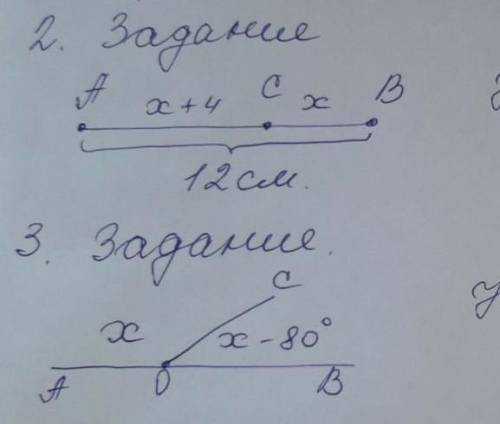 2. Задание
A x+4 C x B
12 см.
3. Задание.
C
x x-80°
A O B